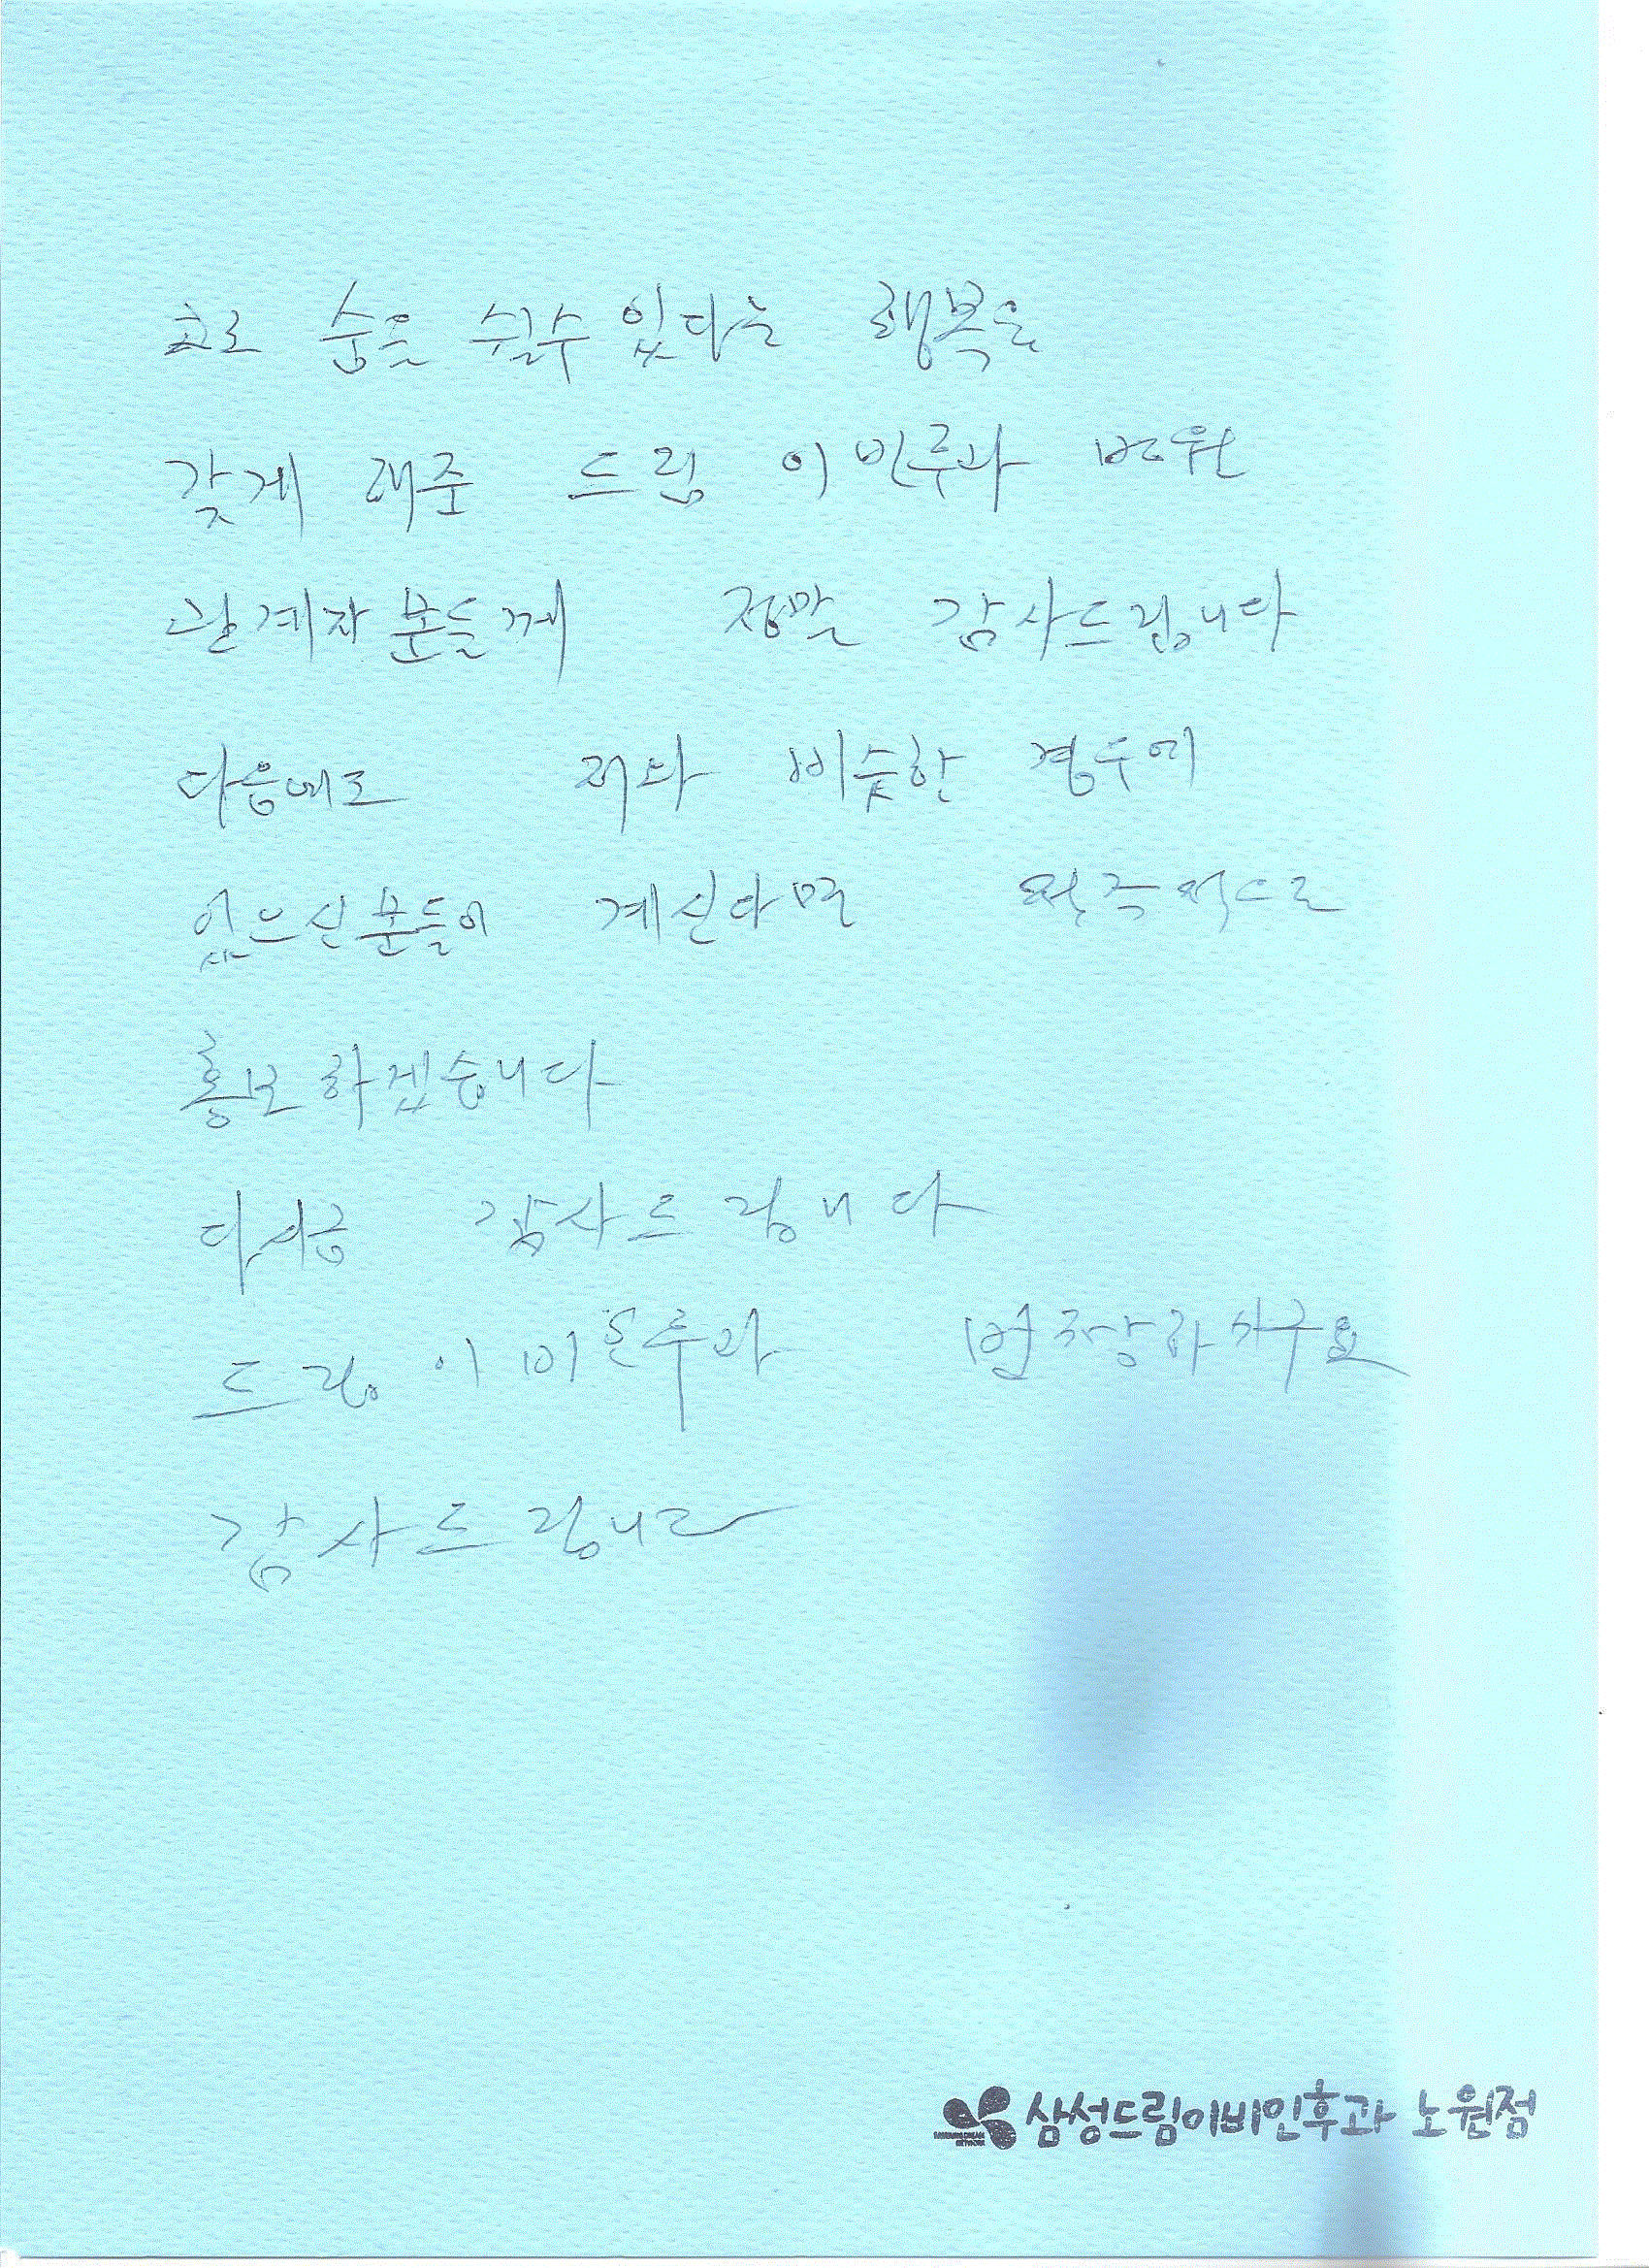 코로 숨을 쉴수 있다는 행복을
갖게 해준 드림 이빈후과 병원
관계자 분들께 정말 감사드립니다
다음에도 저와 비슷한 경우에
있으신 분들이 계신다면 적극적으로
홍보 하겠습니다
다시금 감사드립니다
드림 이비인후과 번창하시구요
감사드립니다
삼성드림이비인후과 노원점